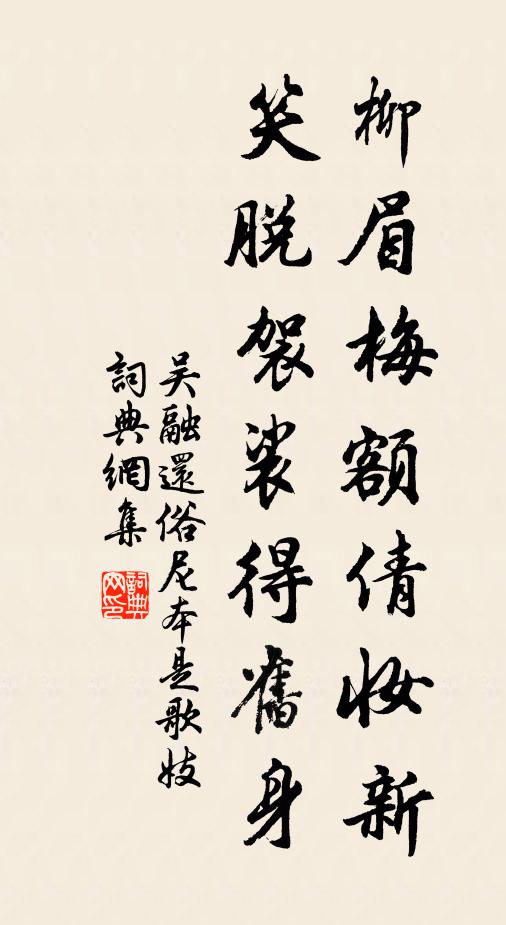 柳眉梅額倩妝新
笑脫袈裟得舊身
吳融還俗尼本是歌妓
詞典網集
詞典网印